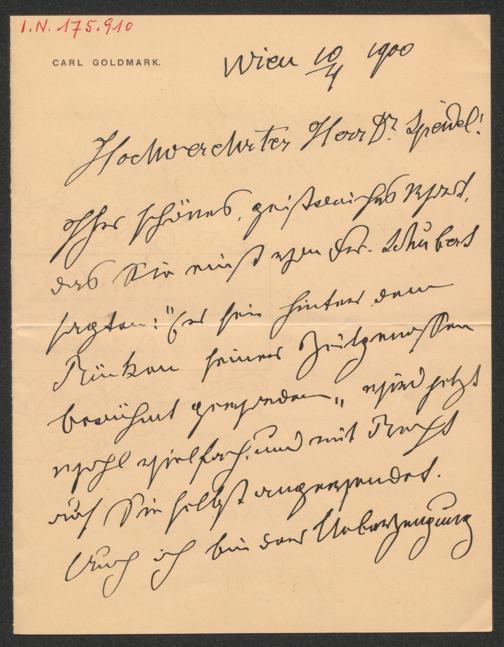 I.N. 175.910
CARL GOLDMARK.
Wien 10/4 1900
Hochverehrter Herr Dr. Speidel!
Ihr schönes, geistreiches Wort,
das Sie einst von Frz. Schubert
sagten: "Er sei hinter dem
Rücken seiner Zeitgenossen
berühmt geworden" wird jetzt
wohl vielfach und mit Recht
auf Sie selbst angewendet.
Auch ich bin der Ueberzeugung